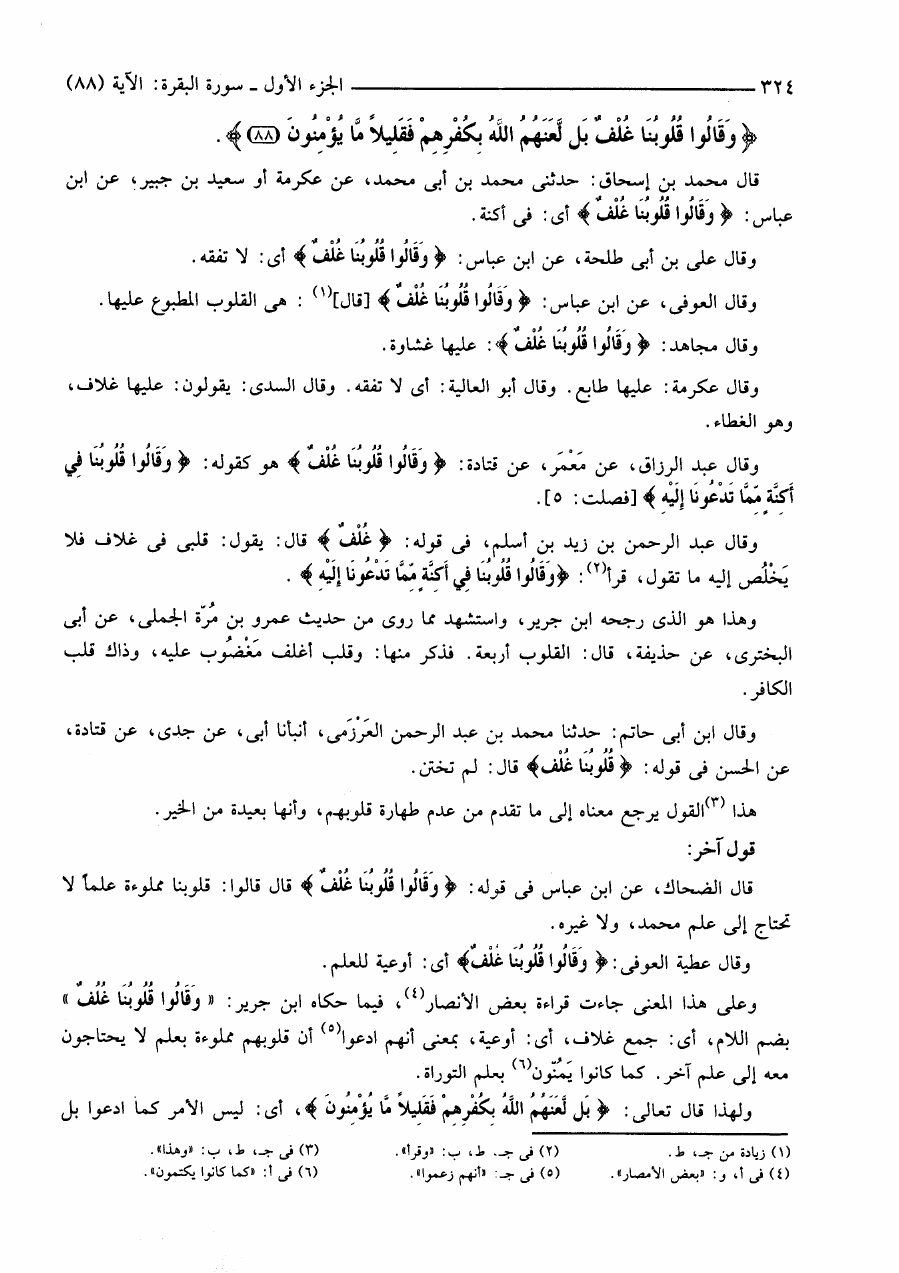 ٣٢٤ ــــــــــــــــــــــــــــــــ الجزء الأول ـ سورة البقرة: الآية (٨٨)
﴿ وَقَالُوا قُلُوبُنَا غُلْفٌ بَل لَّعَنَهُمُ اللَّهُ بِكُفْرِهِمْ فَقَلِيلاً مَّا يُؤْمِنُونَ (٨٨) ﴾.
قال محمد بن إسحاق: حدثنى محمد بن أبى محمد، عن عكرمة أو سعيد بن جبير، عن ابن
عباس: ﴿ وَقَالُوا قُلُوبُنَا غُلْفٌ ﴾ أى: فى أكنة.
وقال على بن أبى طلحة، عن ابن عباس: ﴿ وَقَالُوا قُلُوبُنَا غُلْفٌ ﴾ أى: لا تفقه.
وقال العوفى، عن ابن عباس: ﴿ وَقَالُوا قُلُوبُنَا غُلْفٌ ﴾ [قال](١) : هى القلوب المطبوع عليها.
وقال مجاهد: ﴿ وَقَالُوا قُلُوبُنَا غُلْفٌ ﴾: عليها غشاوة.
وقال عكرمة: عليها طابع. وقال أبو العالية: أى لا تفقه. وقال السدى: يقولون: عليها غلاف،
وهو الغطاء.
وقال عبد الرزاق، عن مَعْمَر، عن قتادة: ﴿ وَقَالُوا قُلُوبُنَا غُلْفٌ ﴾ هو كقوله: ﴿ وَقَالُوا قُلُوبُنَا فِي
أَكِنَّةٍ مِّمَّا تَدْعُونَا إِلَيْهِ ﴾ [فصلت: ٥].
وقال عبد الرحمن بن زيد بن أسلم، فى قوله: ﴿ غُلْفٌ ﴾ قال: يقول: قلبى فى غلاف فلا
يَخْلُص إليه ما تقول، قرأ(٢): ﴿وَقَالُوا قُلُوبُنَا فِي أَكِنَّةٍ مِّمَّا تَدْعُونَا إِلَيْهِ ﴾ .
وهذا هو الذى رجحه ابن جرير، واستشهد مما روى من حديث عمرو بن مُرّة الجملى، عن أبى
البخترى، عن حذيفة، قال: القلوب أربعة. فذكر منها: وقلب أغلف مَغْضُوب عليه، وذاك قلب
الكافر.
وقال ابن أبى حاتم: حدثنا محمد بن عبد الرحمن العَرْزَمى، أنبأنا أبى، عن جدى، عن قتادة،
عن الحسن فى قوله: ﴿ قُلُوبُنَا غُلْف﴾ قال: لم تختن.
هذا (٣)القول يرجع معناه إلى ما تقدم من عدم طهارة قلوبهم، وأنها بعيدة من الخير.
قول آخر:
قال الضحاك، عن ابن عباس فى قوله: ﴿ وَقَالُوا قُلُوبُنَا غُلْفٌ ﴾ قال قالوا: قلوبنا مملوءة علماً لا
تحتاج إلى علم محمد، ولا غيره.
وقال عطية العوفى:﴿ وَقَالُوا قُلُوبُنَا غُلْفٌ﴾ أى: أوعية للعلم.
وعلى هذا المعنى جاءت قراءة بعض الأنصار(٤)، فيما حكاه ابن جرير: « وَقَالُوا قُلُوبُنَا غُلُفٌ »
بضم اللام، أى: جمع غلاف، أى: أوعية، بمعنى أنهم ادعوا(٥) أن قلوبهم مملوءة بعلم لا يحتاجون
معه إلى علم آخر. كما كانوا يَمُنّون(٦) بعلم التوراة.
ولهذا قال تعالى: ﴿ بَل لَّعَنَهُمُ اللَّهُ بِكُفْرِهِمْ فَقَلِيلاً مَّا يُؤْمِنُونَ ﴾، أى: ليس الأمر كما ادعوا بل
(١) زيادة من جـ، ط. (٢) فى جـ، ط، ب: «وقرأ». (٣) فى جـ، ط، ب: «وهذا».
(٤) فى أ، و: «بعض الأمصار». (٥) فى جـ: «أنهم زعموا». (٦) فى أ: «كما كانوا يكتمون».